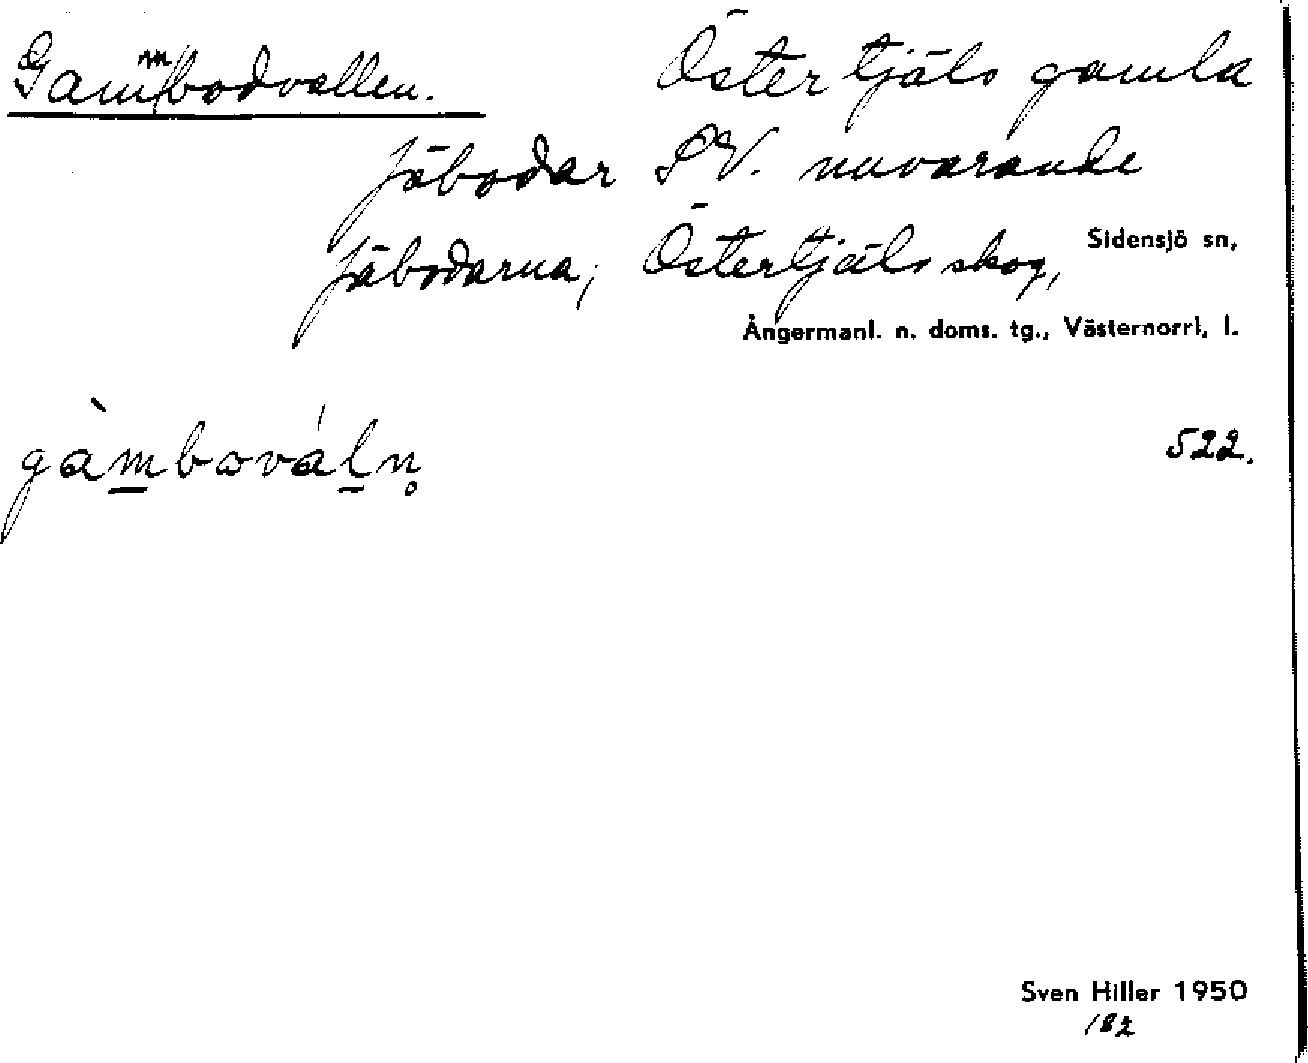 Gammbodvallen. Östertjäls gamla
fäbodar SV. nuvarande
fäbodarna, Östertjäls skog,
Sidensjö sn,
Ångermanl. n. doms. tg., Västernorrl. l.
gàmbovál̥n̥
522.
Sven Hiller 1950
182